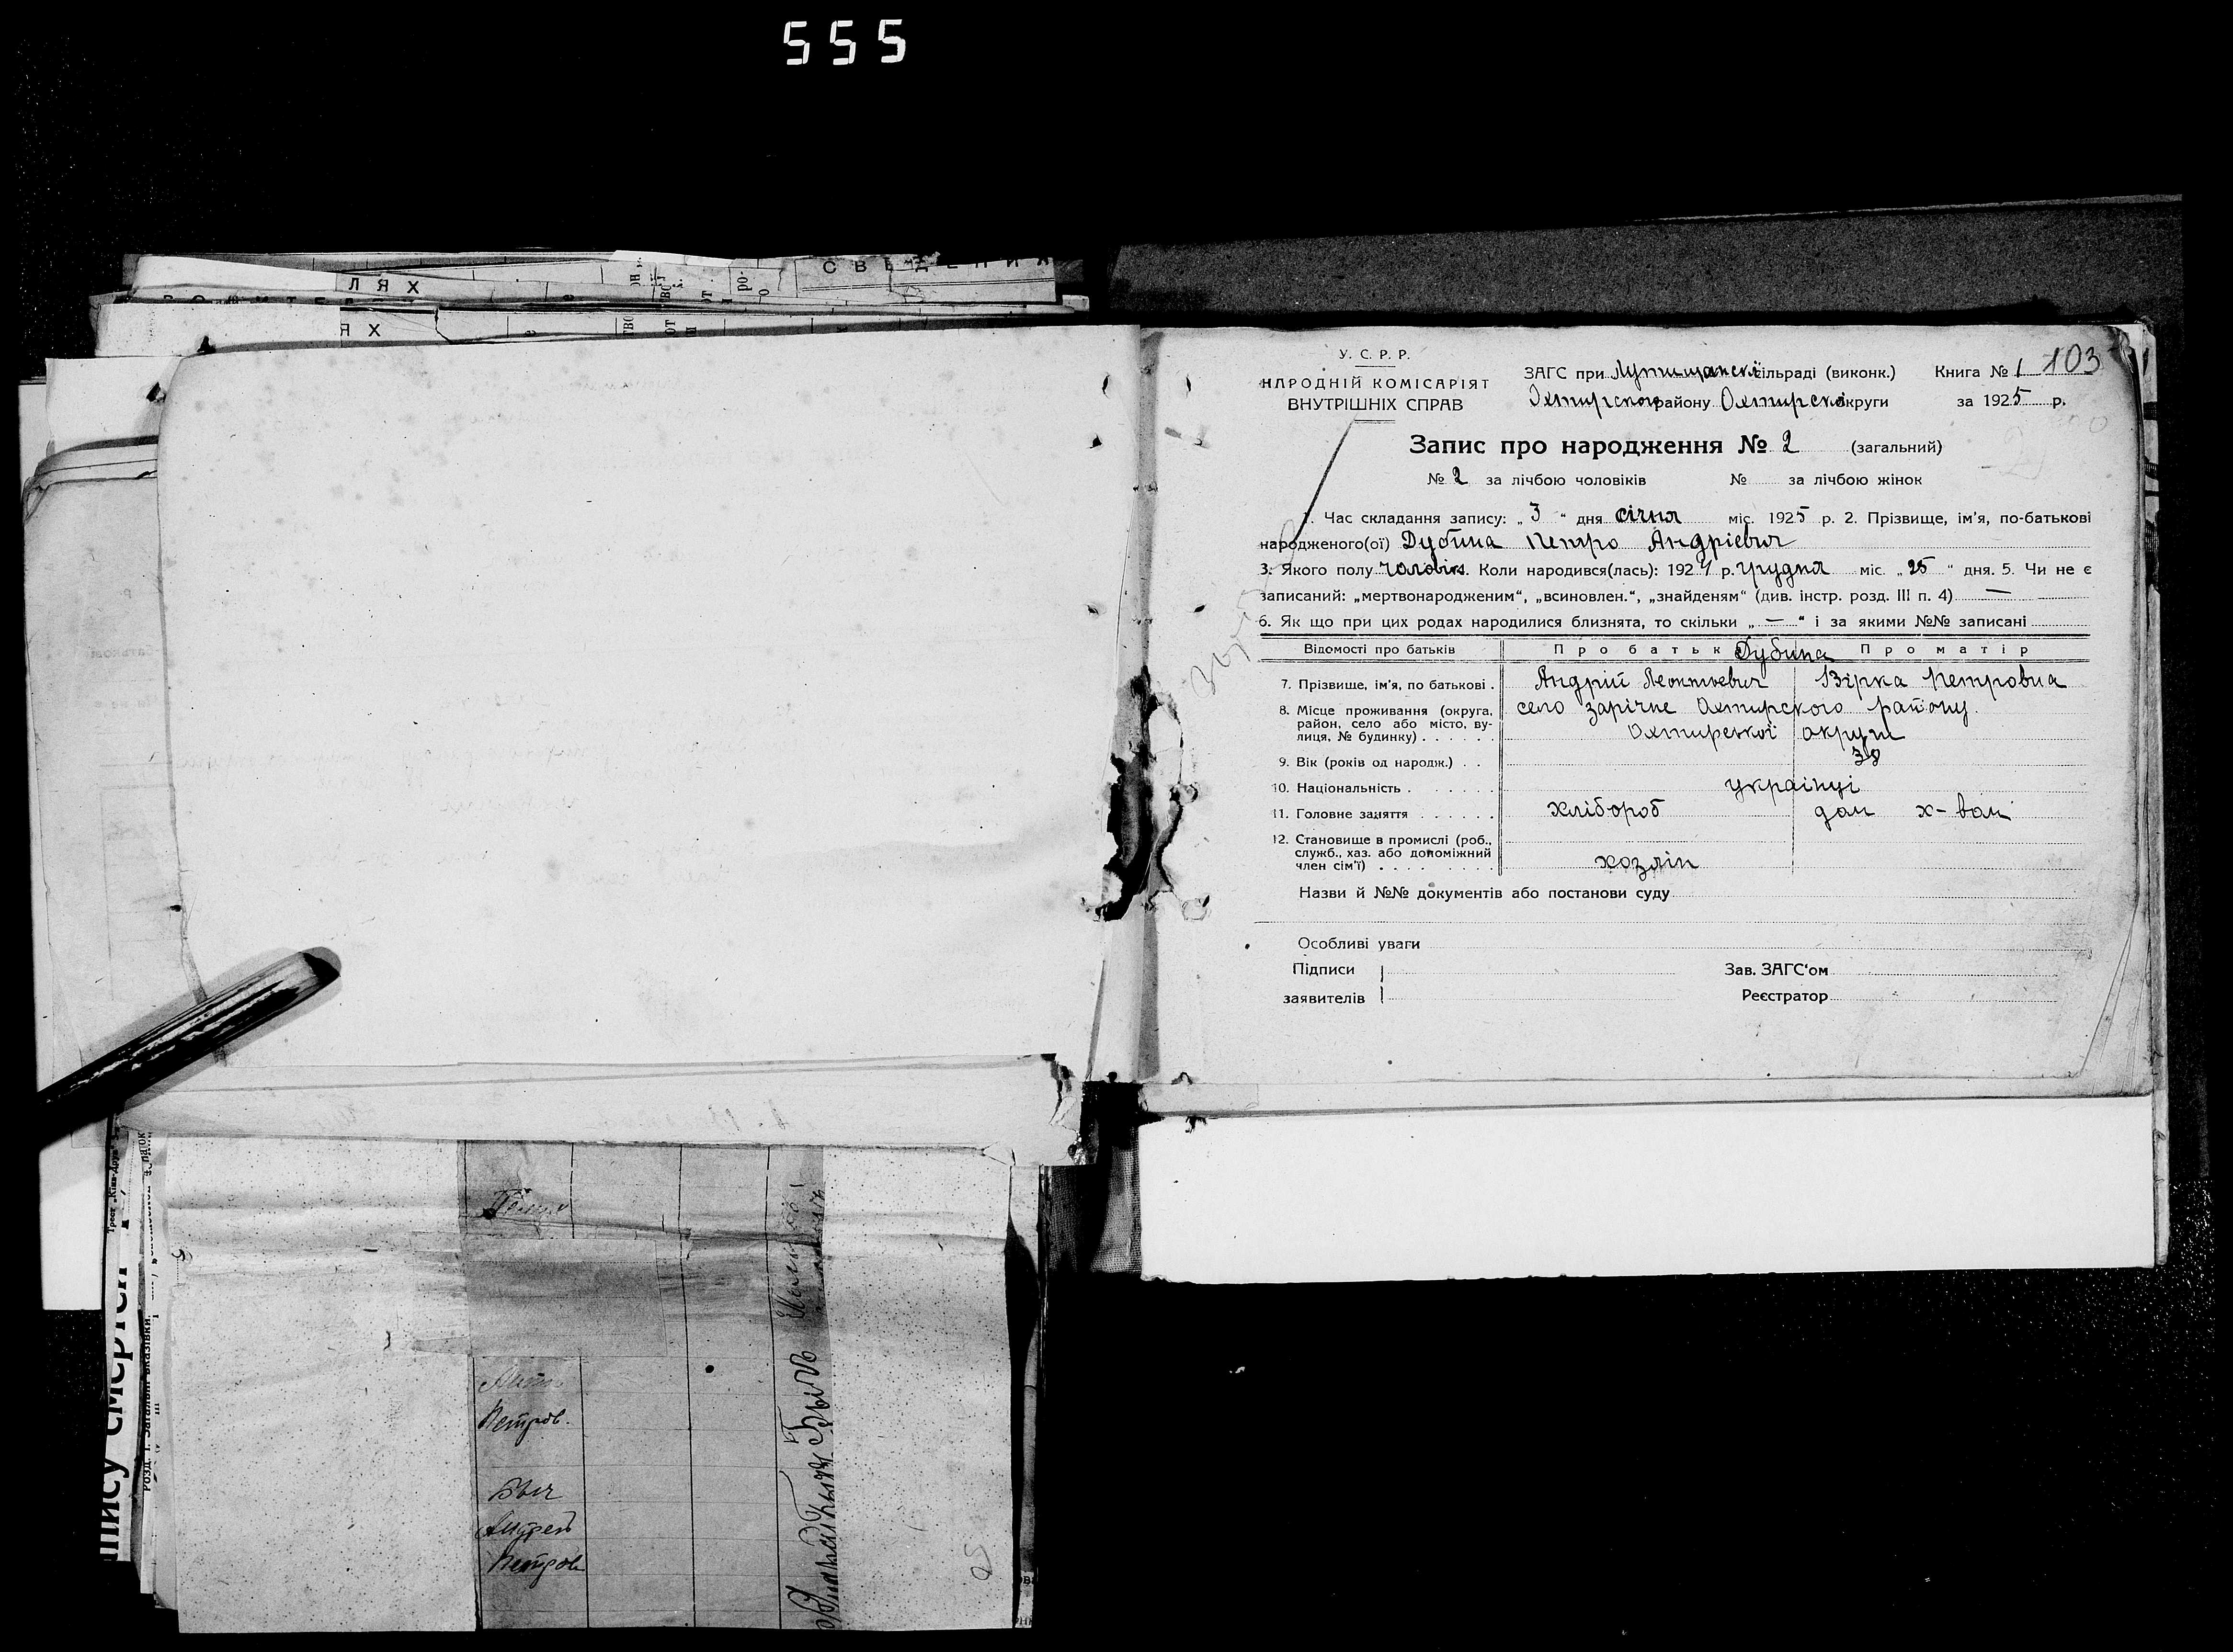 555
СВѢДЕНИЯ
ЛЯХ
ЯХ
У. С. Р. Р.
НАРОДНІЙ КОМІСАРІЯТ
ВНУТРІШНІХ СПРАВ
ЗАГС при Лутищанскі сільраді (виконк.) Книга № 1 103
Охтирского району Охтирскої округи за 1925 р.
Запис про народження № 2 (загальний)
№ 2 за лічбою чоловіків № за лічбою жінок
1. Час складання запису: „ 3 “ дня січня міс. 1925 р. 2. Прізвище, ім'я, по-батькові
народженого(ої) Дубина Петро Андрієвич
3. Якого полу чоловік. Коли народився(лась): 1924 р. грудня міс. „ 25 “ дня. 5. Чи не є
записаний: „мертвонародженим“, „всиновлен.“, „знайденям“ (див. інстр. розд. III п. 4) —
6. Як що при цих родах народилися близнята, то скільки „ — “ і за якими №№ записані
Відомості про батьків Про батьк Дубина Про матір
7. Прізвище, ім'я, по батькові . Андрій Леонтьевич Вірка Петровна
8. Місце проживання (округа, село зарічне Охтирского району
район, село або місто, ву-
лиця, № будинку) . . . . . Охтирської округи
9. Вік (років од народж.) . . 38
10. Національність . українці
11. Головне заняття хлібороб дом х-вом
12. Становище в промислі (роб.,
служб., хаз. або допоміжний
член сім'ї) хозяін
Назви й №№ документів або постанови суду
Особливі уваги
Підписи Зав. ЗАГС'ом
заявителів Реєстратор
Петров.
Андрей
Петров